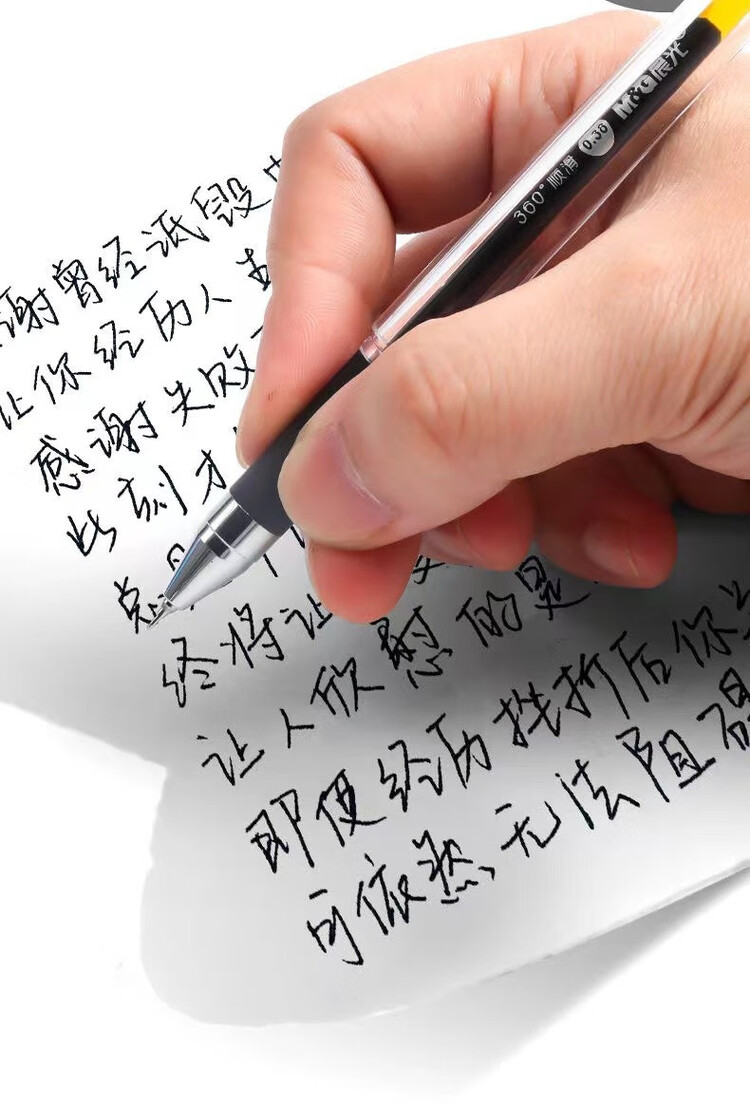 谢曾经诋毁
让你经历人
感谢失败
此刻才
总
终将让
让人欣慰的是
即便经历挫折后你
可依然无法阻碍
M&G晨光
0.38
360°顺滑